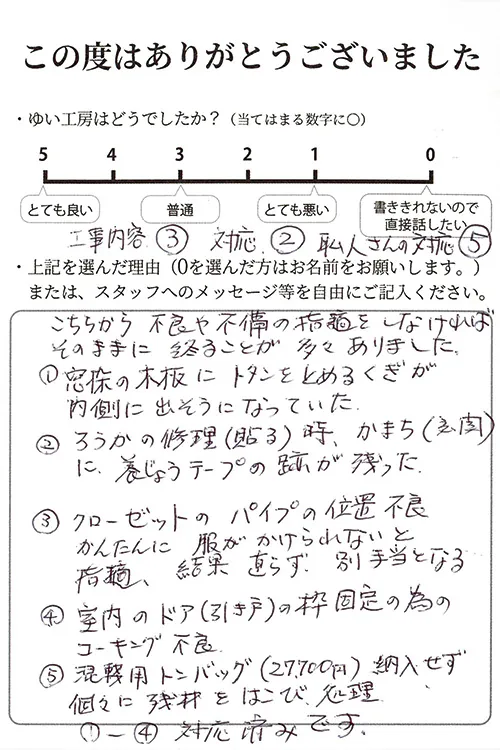 この度はありがとうございました
・ゆい工房はどうでしたか？（当てはまる数字に〇）
5 4 3 2 1 0
とても良い 普通 とても悪い 書ききれないので直接話したい
工事内容 ③ 対応 ② 職人さんの対応 ⑤
・上記を選んだ理由（0を選んだ方はお名前をお願いします。）
または、スタッフへのメッセージ等を自由にご記入ください。
こちらから 不良や不備の指摘をしなければ
そのままに 終ることが 多々ありました。
① 窓際の木板に トタンをとめるくぎが
内側に出そうになっていた。
② ろうかの修理(貼る)時、かまち(玄関)
に、養じょうテープの跡が残った。
③ クローゼットの パイプの位置不良
かんたんに 服がかけられないと
指摘、結果 直らず、別手当となる
④ 室内のドア(引き戸)の枠固定の為の
コーキング不良
⑤ 混載用トンバッグ(27,700円) 納入せず
個々に残材をはこび、処理。
①ー④ 対応済みです。